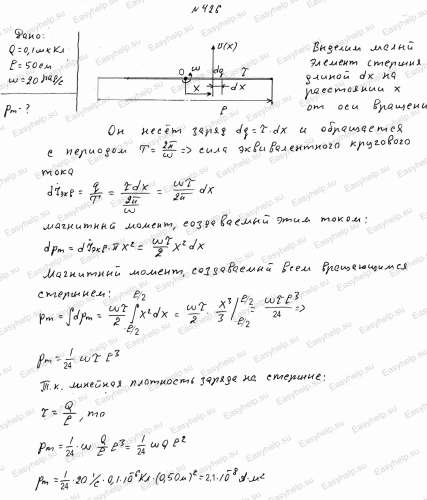 N426
Дано:
Q=0,1мкКл
ℓ=50см
ω=20 рад/с
Pm-?
v(x)
O ω dq τ
x dx
ℓ
Выделим малый
элемент стержня
длиной dx на
расстоянии x
от оси вращени
Он несёт заряд dq=τ·dx и обращается
с периодом T=2π/ω => сила эквивалентного кругового
тока
diэкв = q/T = τdx/(2π/ω) = ωτ/2π dx
магнитный момент, создаваемый этим током:
dpm = diэкв·πx² = ωτ/2 x²dx
Магнитный момент, создаваемый всем вращающимся
стержнем:
pm = ∫dpm = ωτ/2 ∫x²dx = ωτ/2 · x³/3 | = ωτℓ³/24 =>
ℓ/2 -ℓ/2 ℓ/2 -ℓ/2
pm = 1/24 ωτℓ³
Т.к. линейная плотность заряда на стержне:
τ = Q/ℓ, то
pm = 1/24·ω Q/ℓ ℓ³ = 1/24 ωQℓ²
pm = 1/24·20 1/с·0,1·10⁻⁶Кл·(0,50м)² = 2,1·10⁻⁸ А·м²
Easyhelp.su